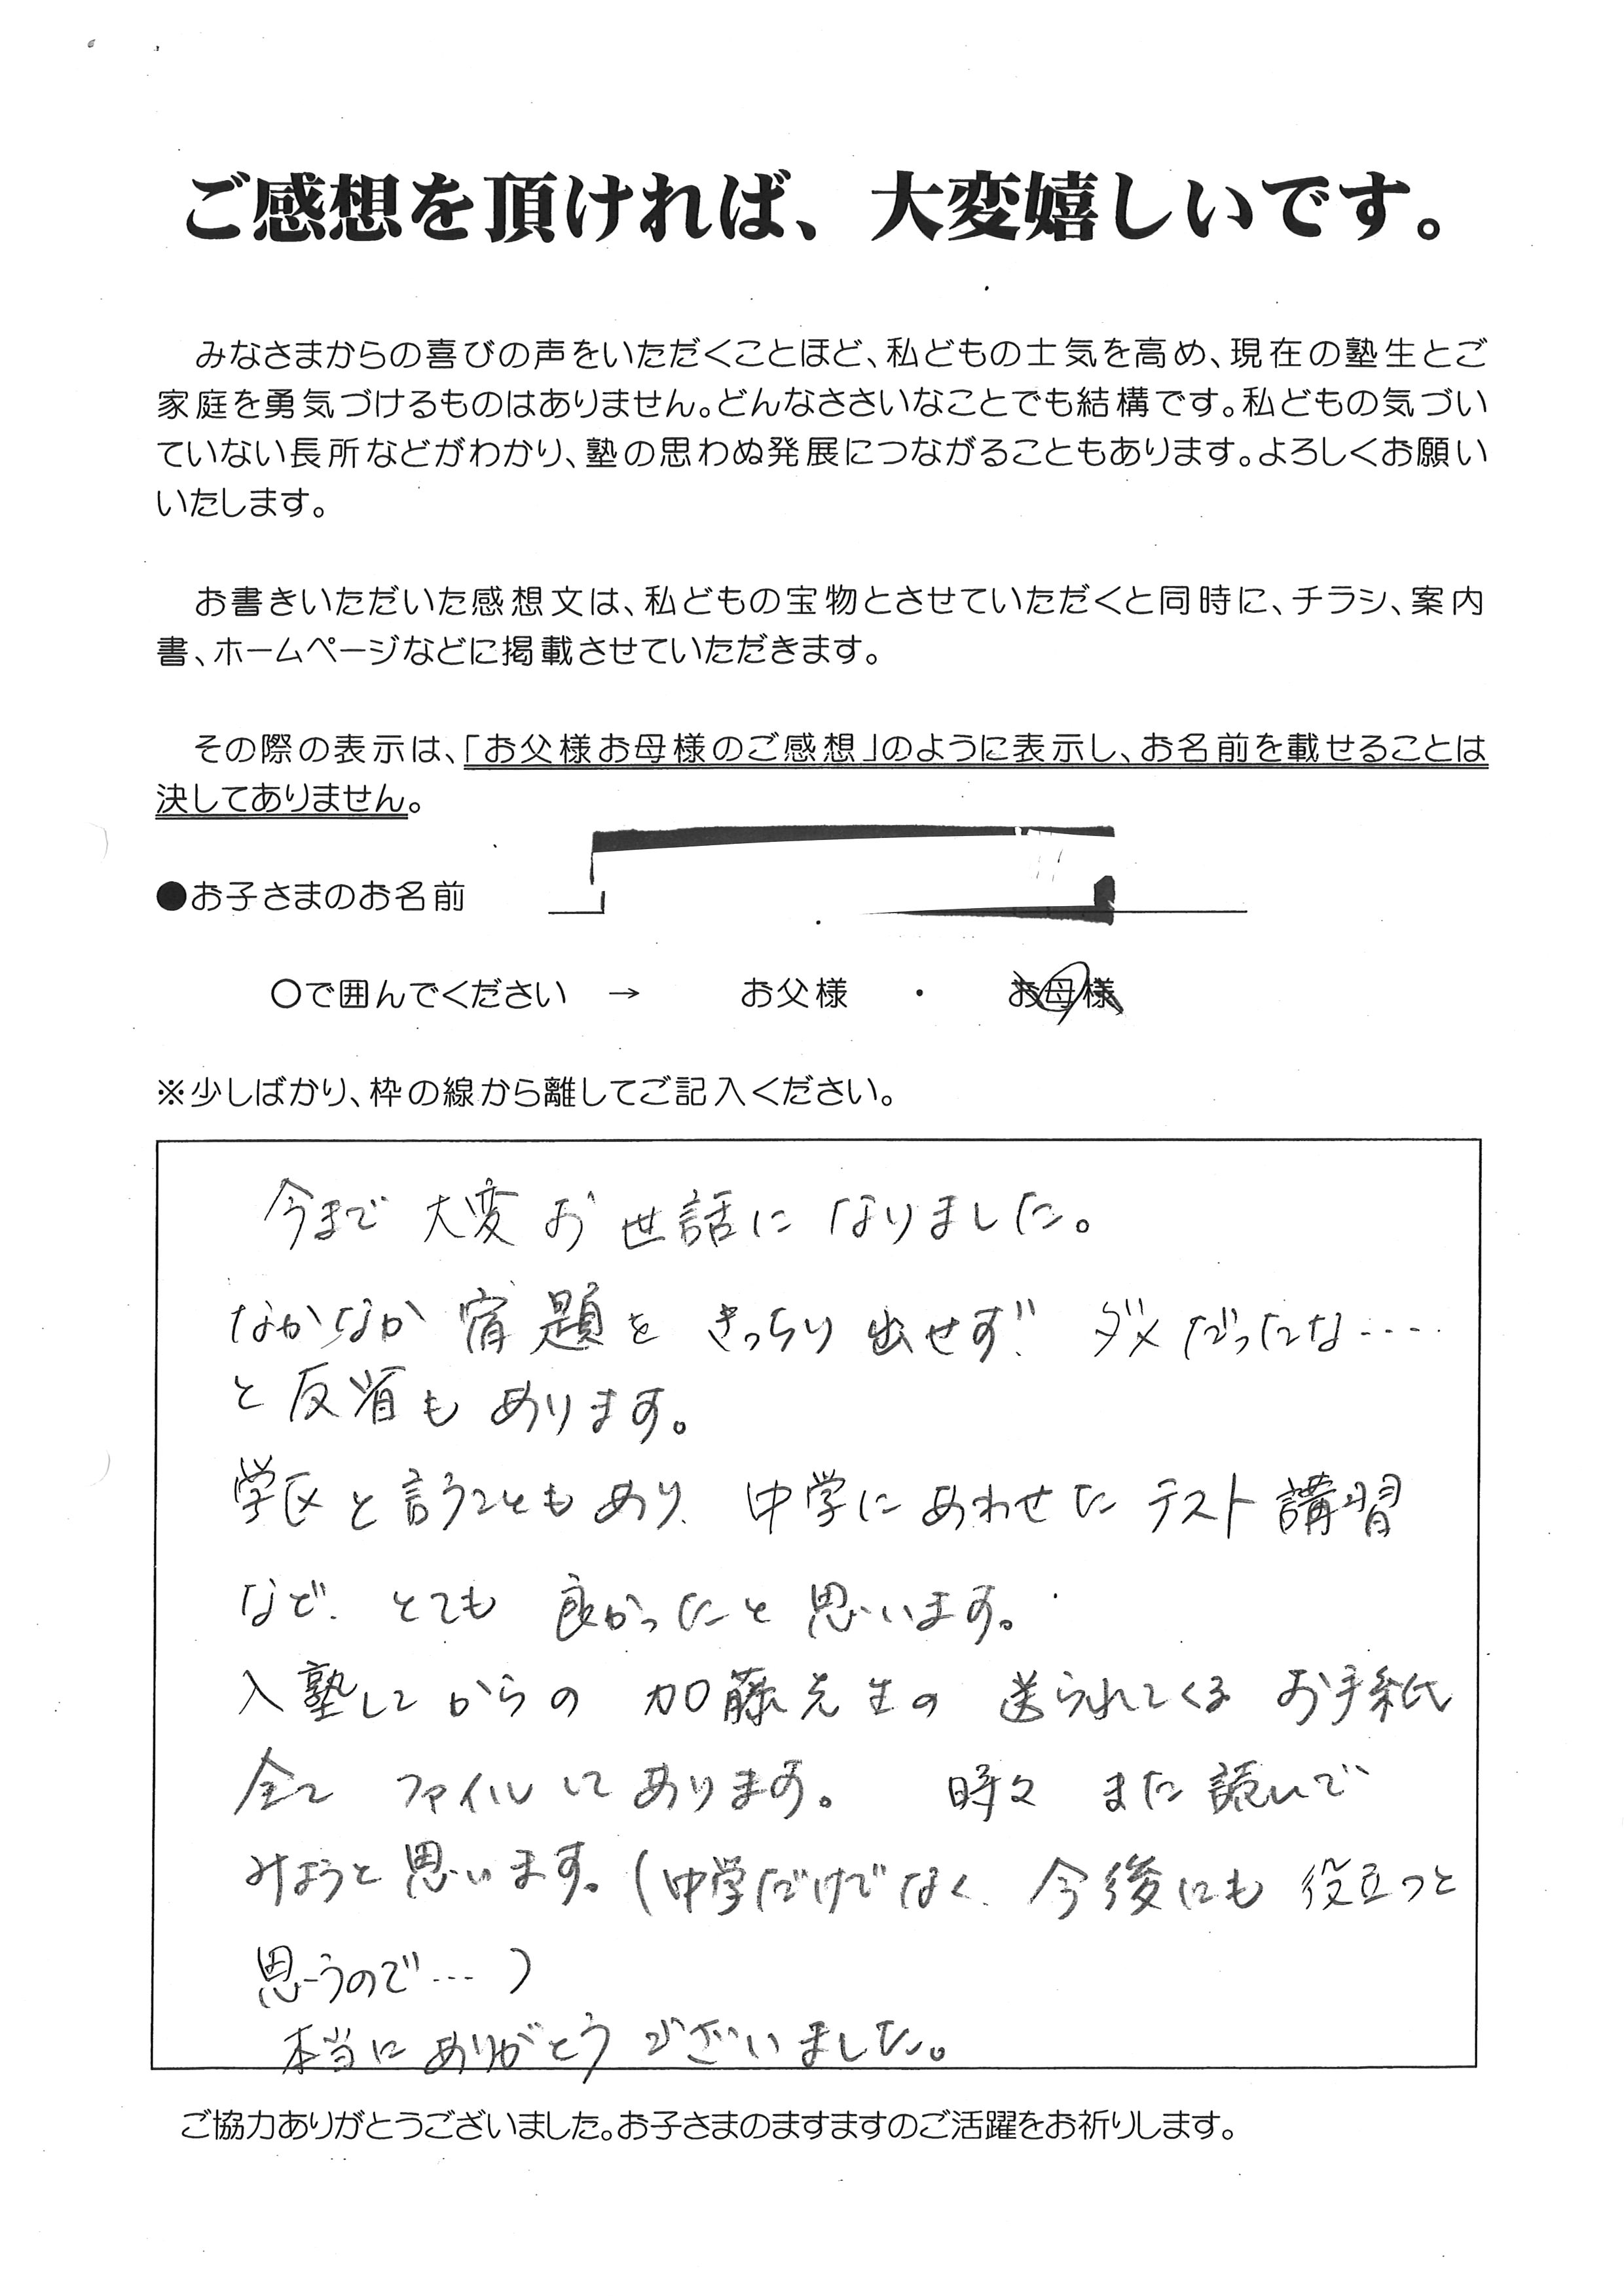 ご感想を頂ければ、大変嬉しいです。
みなさまからの喜びの声をいただくことほど、私どもの士気を高め、現在の塾生とご
家庭を勇気づけるものはありません。どんなささいなことでも結構です。私どもの気づい
ていない長所などがわかり、塾の思わぬ発展につながることもあります。よろしくお願い
いたします。
お書きいただいた感想文は、私どもの宝物とさせていただくと同時に、チラシ、案内
書、ホームページなどに掲載させていただきます。
その際の表示は、「お父様お母様のご感想」のように表示し、お名前を載せることは
決してありません。
●お子さまのお名前
○で囲んでください → お父様 ・ お母様
※少しばかり、枠の線から離してご記入ください。
今まで 大変 お世話に なりました。
なかなか 宿題を きっちり 出せず、ダメだったな・・・・
と反省も あります。
学区と言うこともあり、中学に あわせた テスト講習
など、とても 良かったと 思います。
入塾してからの 加藤先生の 送られてくる お手紙
全て ファイルして あります。 時々 また 読んで
みようと 思います。(中学だけでなく、今後にも 役立つと
思うので・・・)
本当に ありがとう ございました。
ご協力ありがとうございました。お子さまのますますのご活躍をお祈りします。